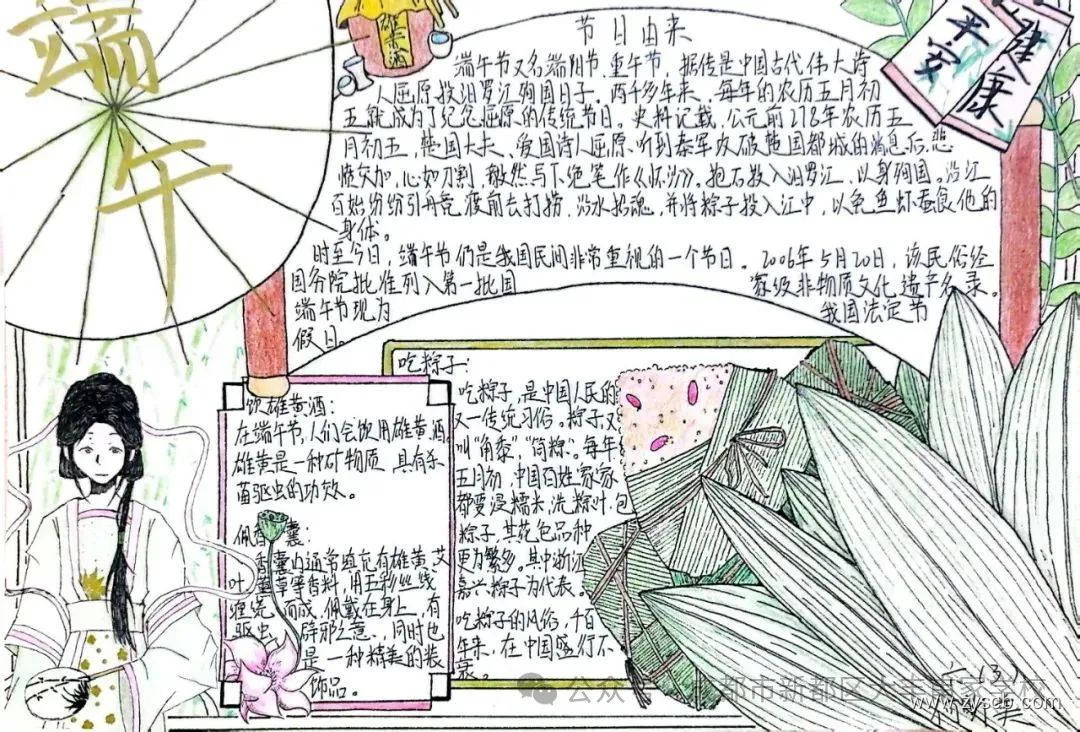 端
午
雄黄酒
平安
健康
节日由来
端午节又名端阳节、重午节，据传是中国古代伟大诗
人屈原投汨罗江殉国日子，两千多年来，每年的农历五月初
五就成为了纪念屈原的传统节日。史料记载，公元前278年农历五
月初五，楚国大夫、爱国诗人屈原听到秦军攻破楚国都城的消息后，悲
愤交加，心如刀割，毅然写下绝笔作《怀沙》。抱石投入汨罗江，以身殉国。沿江
百姓纷纷引舟竞渡前去打捞，沿水招魂，并将粽子投入江中，以免鱼虾蚕食他的
身体。
时至今日，端午节仍是我国民间非常重视的一个节日。2006年5月20日，该民俗经
国务院批准列入第一批国 家级非物质文化遗产名录。
端午节现为 我国法定节
假日。
饮雄黄酒：
在端午节，人们会饮用雄黄酒。
雄黄是一种矿物质，具有杀
菌驱虫的功效。
佩香囊：
香囊内通常填充有雄黄、艾
叶、薰草等香料，用五彩丝线
缠绕而成，佩戴在身上，有
驱虫、辟邪之意，同时也
是一种精美的装
饰品。
吃粽子：
吃粽子，是中国人民的
又一传统习俗。粽子又
叫“角黍”，“筒粽”。每年
五月初，中国百姓家家
都要浸糯米，洗粽叶，包
粽子，其花色品种
更为繁多。其中浙江
嘉兴粽子为代表。
吃粽子的风俗，千百
年来，在中国盛行不
衰。
公众号
都市新都区大丰
www.zyscb.com